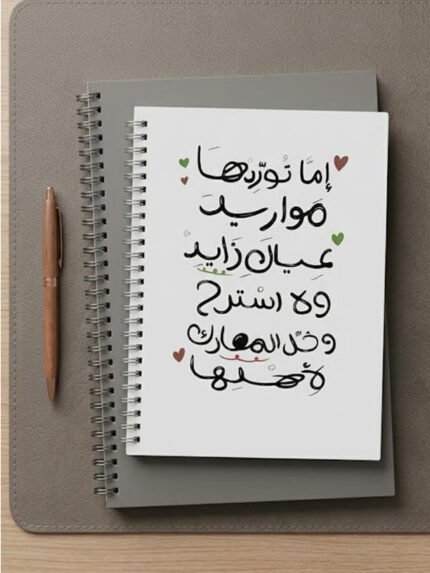 إمَّا تُورّدها
موارسد
عيال زَايد
وﻻ اسْترح
وخلّ المعارك
لأهلها